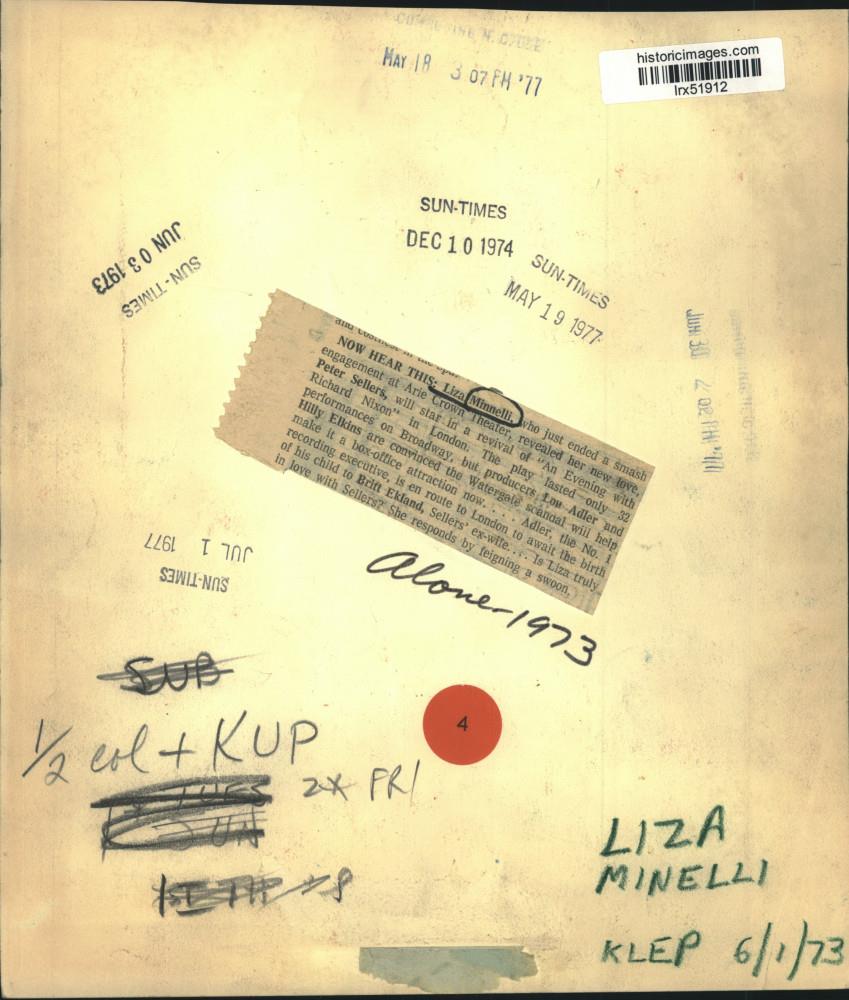 MAY 18 3 07 PM '77
historicimages.com
lrx51912
SUN-TIMES
DEC 10 1974
JUN 03 1973
SUN-TIMES
SUN-TIMES
MAY 19 1977
NOW HEAR THIS: Liza Minnelli, who just ended a smash
engagement at Arie Crown Theater, revealed her new love,
Peter Sellers, will star in a revival of "An Evening with
Richard Nixon" in London. The play lasted only 32
performances on Broadway, but producers Lou Adler and
Hilly Elkins are convinced the Watergate scandal will help
make it a box-office attraction now. . . . Adler, the No. 1
recording executive, is en route to London to await the birth
of his child to Britt Ekland, Sellers' ex-wife. . . . Is Liza truly
in love with Sellers? She responds by feigning a swoon.
JUL 1 1977
SUN-TIMES
Alone-1973
SUB
4
1/2 col + KUP
2x FRI
LIZA
MINELLI
KLEP 6/1/73